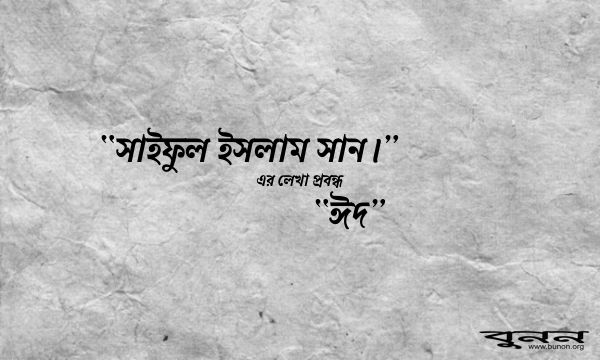 “সাইফুল ইসলাম সান।”
এর লেখা প্রবন্ধ
“ঈদ”
বুনন
www.bunon.org